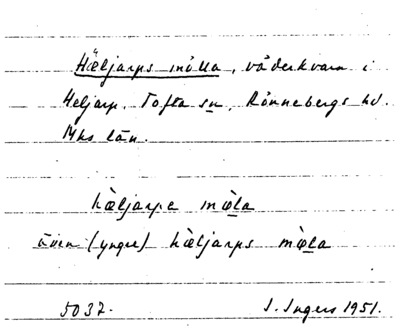 Häljarps mölla, väderkvarn i
Heljarp, Tofta sn, Rönnebergs hd.
Mhs län.
hæ̀ljarpa mø̀la
även (yngre) hæ̀ljarps mø̀la
5037. I. Ingers 1951.